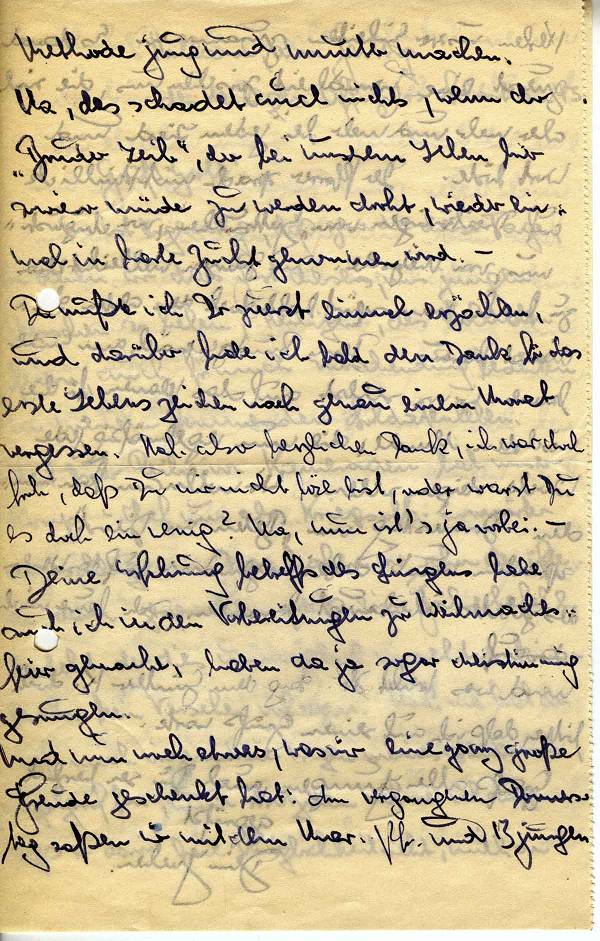 Methode jung und munter machen.
Na, das schadet auch nichts, wenn der
", der bei unserem Leben hin
wieder müde zu werden droht, wieder ein=
mal in harte Zucht genommen wird. –
Da mußte ich Dir zuerst einmal erzählen,
und darüber habe ich bald den Dank für das
erste Lebenszeichen nach genau einem Monat
vergessen. Nah also herzlichen Dank, ich war doch
froh, daß Du mir nicht böse bist, oder warst Du
es doch ein wenig? Na, nun ist's ja vorbei. –
Deine Erfahrung betreffs des Singens habe
auch ich in den Vorbereitungen zu Weihnachts=
feier gemacht, haben da ja sogar dreistimmig
gesungen.
Und nun noch etwas, was mir eine ganz große
Freude geschenkt hat: Am vergangnen Donners=
tag saßen wir mit dem und 13 jungen